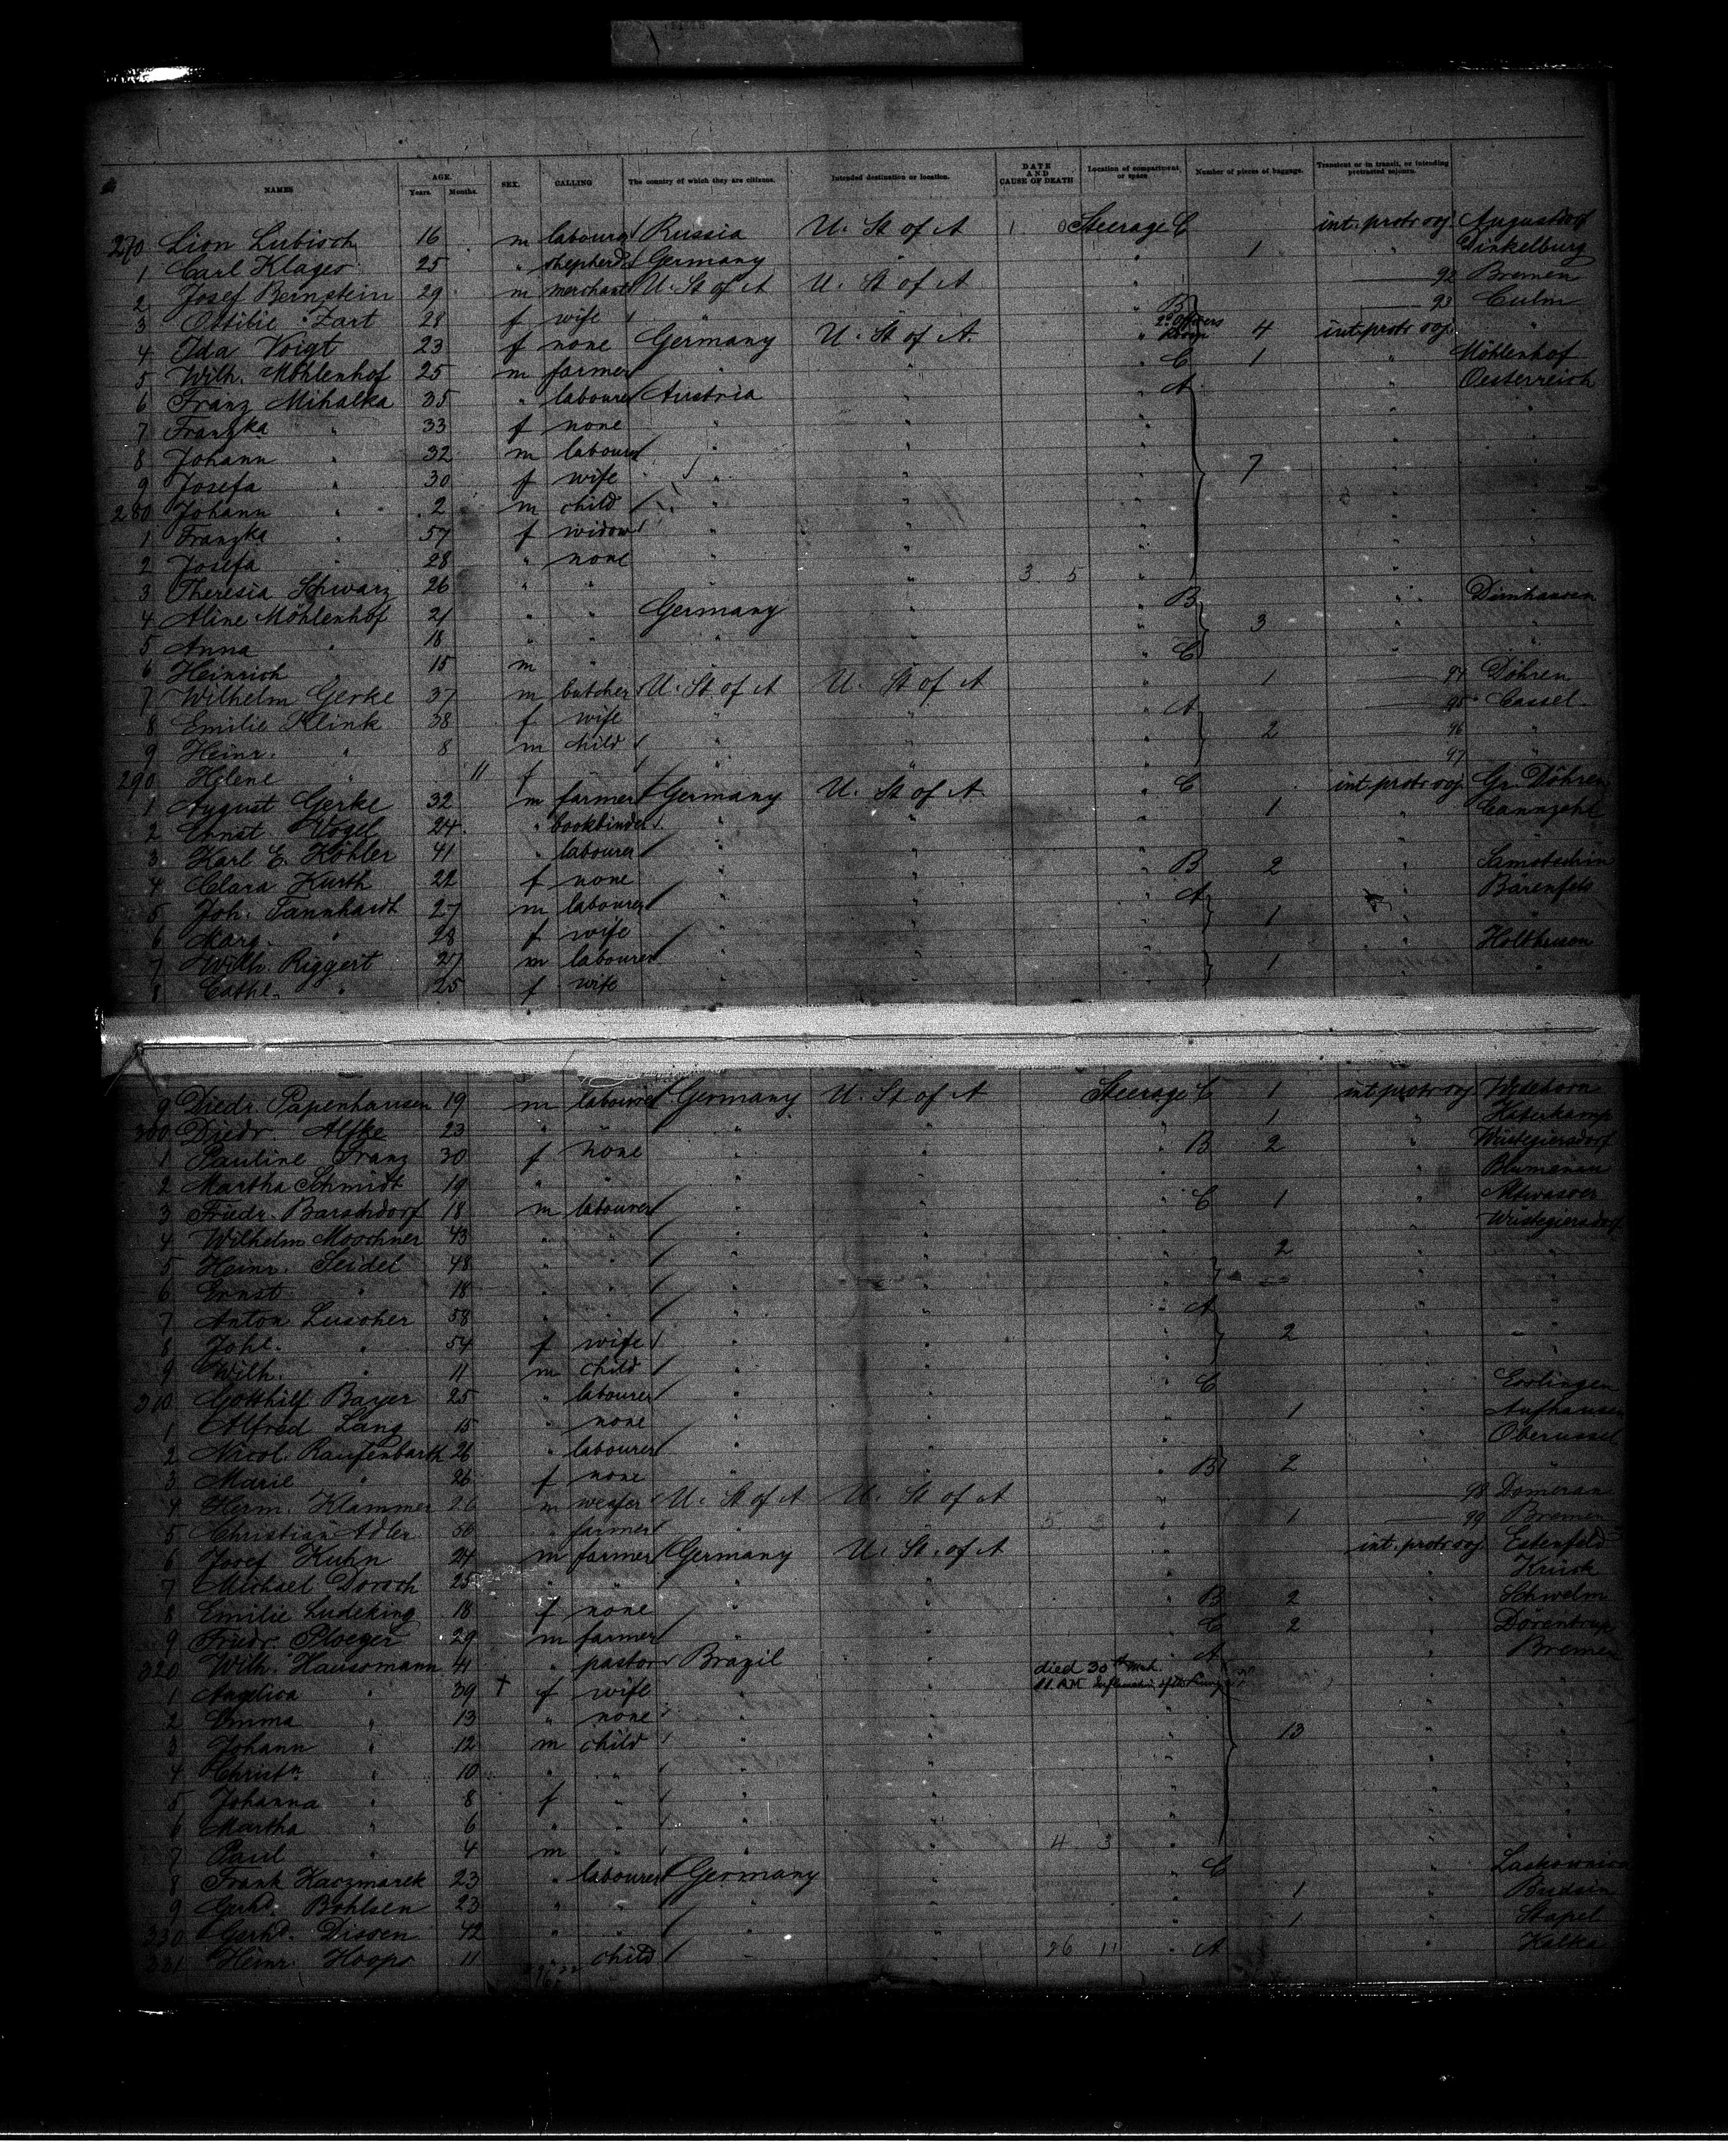 NAMES AGE. Years. Months. SEX. CALLING The country of which they are citizens. Intended destination or location. DATE AND CAUSE OF DEATH Location of compartment or space Number of pieces of baggage. Transient or in transit, or intending protracted sojourn.
270 Lion Lubisch 16 m labourer Russia U. St of A Steerage C int. protr soj. Augustdorf
1 Carl Klages 25 " shepherd Germany " " 1 " Dinkelburg
2 Josef Bernstein 29 m merchant U. St of A U. St of A " 92 Bremen
3 Ottilie Zart 28 f wife " B 93 Culm
4 Ida Voigt 23 f none Germany U. St of A. " 2d Officers Room 4 int. protr soj. "
5 Wilh. Möhlenhof 25 m farmer " " " C 1 " Möhlenhof
6 Franz Mihalka 35 " labourer Austria " " A " Oesterreich
7 Franzka " 33 f none " " " " "
8 Johann " 32 m labourer " " " 7 " "
9 Josefa " 30 f wife " " " " "
280 Johann " 2 m child " " " " "
1 Franzka " 57 f widow " " " " "
2 Josefa " 28 " none " " " " "
3 Theresia Schwarz 26 " " " " 3 5 " " "
4 Aline Möhlenhof 21 " " Germany " " B " Dirnhausen
5 Anna " 18 " " " " " 3 " "
6 Heinrich " 15 m " " " " C " "
7 Wilhelm Gerke 37 m butcher U. St of A U. St of A " 1 94 Döhren
8 Emilie Klink 38 f wife " " " A 95 Cassel
9 Heinr. " 8 m child " " " 2 96 "
290 Helene " 11 f " " " 97 "
1 August Gerke 32 m farmer Germany U. St of A " C int. protr soj. Gr. Döhren
2 Ernst Vogel 24 " bookbinder " " " 1 "
3 Karl E. Köhler 41 " labourer " " "
4 Clara Kurth 22 f none " " " B 2 " Samotschin
5 Joh. Tannhardt 27 m labourer " " " A Bärenfels
6 Marg. " 28 f wife " " " 1 " "
7 Wilh. Riggert 27 m labourer " " " " Holthusen
8 Cathe. " 25 f wife " " " 1 " "
9 Diedr. Papenhausen 19 m labourer Germany U. St of A Steerage C 1 int. protr soj. Wedehorn
300 Diedr. Alfke 23 " " " " " 1 " Katerkamp
1 Pauline Franz 30 f none " " " B 2 " Wüstegiersdorf
2 Martha Schmidt 19 " " " " " " Blumenau
3 Friedr. Barschdorf 18 m labourer " " " C 1 " Altwasser
4 Wilhelm Moschner 43 " " " " " " Wüstegiersdorf
5 Heinr. Seidel 48 " " " " " 2 " "
6 Ernst " 18 " " " " " " "
7 Anton Luscher 58 " " " " " A " "
8 Johe. " 54 f wife " " " 2 " "
9 Wilh. " 11 m child " " " " "
310 Gotthilf Bayer 25 " labourer " " " C " Esslingen
1 Alfred Lang 15 " none " " " 1 " Aufhausen
2 Nicol. Raufenbarth 26 " labourer " " " " Oberussel
3 Marie " 26 f none " " " B 2 " "
4 Herm. Klammer 26 m weafer U. St of A U. St of A " 98
5 Christian Adler 56 " farmer " " 5 3 " 1 99 Bremen
6 Josef Kuhn 24 m farmer Germany U. St. of A " int. protr soj. Estenfeld
7 Michael Dorsch 25 " " " " " "
8 Emilie Ludeking 18 f none " " " B 2 " Schwelm
9 Friedr. Ploeger 29 m farmer " " " C 2 " Dörentrup
320 Wilh. Haussmann 41 " pastor Brazil " " A " Bremen
1 Angelica " 39 + f wife " " died 30th Mch. 11 AM " "
2 Emma " 13 " none " " " " "
3 Johann " 12 m child " " " 13 " "
4 Christn. " 10 " " " " " " "
5 Johanna " 8 f " " " " " "
6 Martha " 6 " " " " " " "
7 Paul " 4 m " " " 4 3 " " "
8 Frank Kaczmarek 23 " labourer Germany " " C " Laskownica
9 Gerhd. Bohlsen 23 " " " " " 1 "
330 Gerhd. Dissen 42 " " " " " 1 " Stapel
331 Heinr. Hoops 11 " child " " 26 11 " A " Kalka